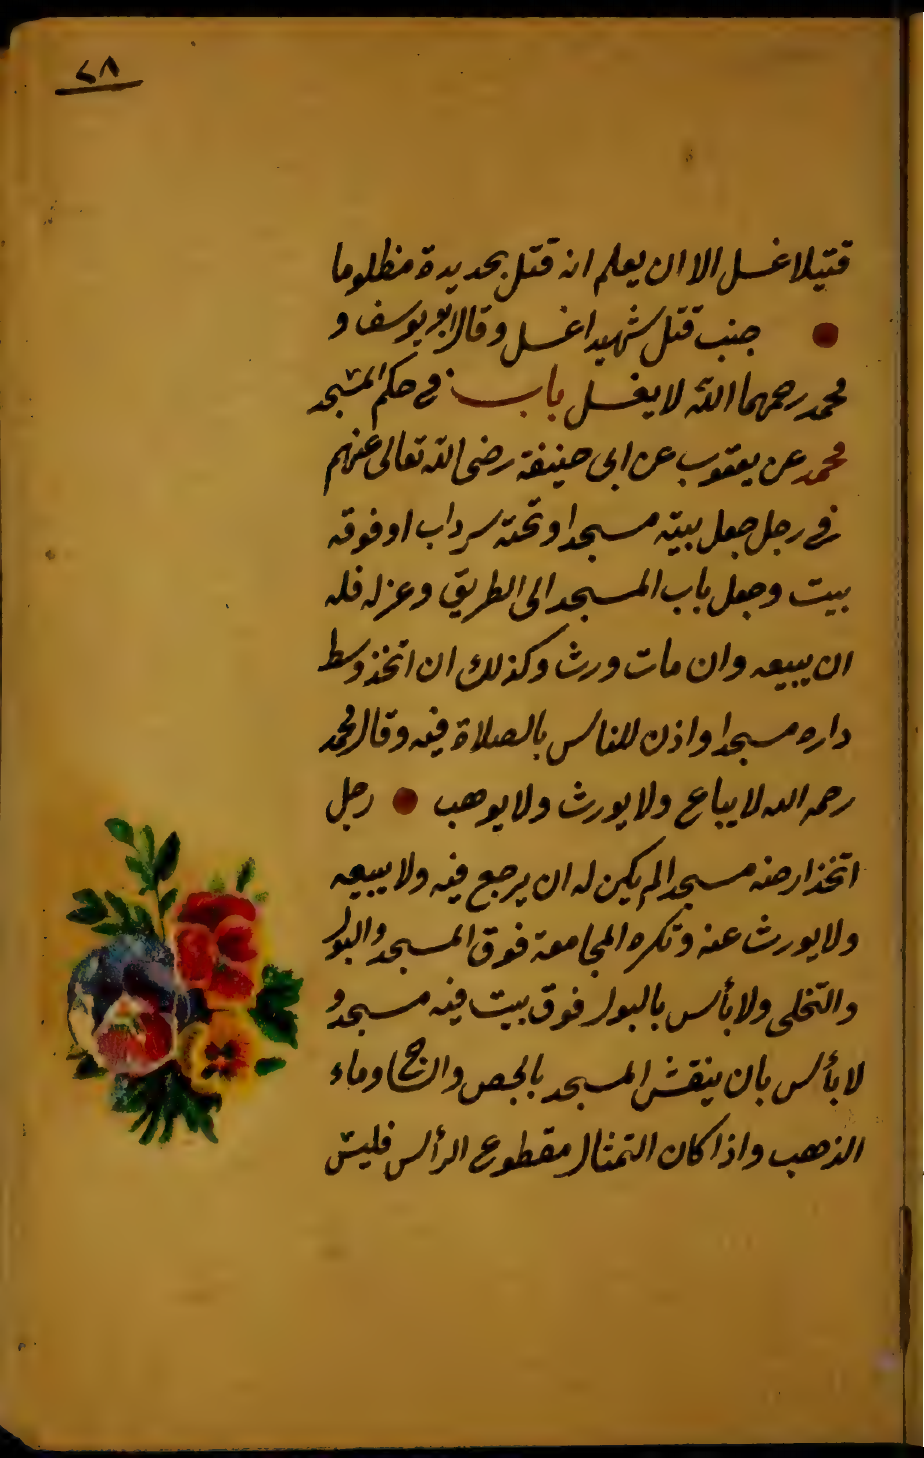 ٢٨
قتيلا غسل الا ان يعلم انه قتل بحديدة مظلوما
جنب قتل شهيدا غسل وقال ابو يوسف و
محمد رحمهما الله لا يغسل باب في حكم المسجد
محمد عن يعقوب عن ابى حنيفة رضى الله تعالى عنهم
في رجل جعل بيته مسجدا وتحته سرداب او فوقه
بيت وجعل باب المسجد الى الطريق وعزله فله
ان يبيعه وان مات ورث وكذلك ان اتخذ وسط
داره مسجدا واذن للناس بالصلاة فيه وقال محمد
رحمه الله لا يباع ولا يورث ولا يوهب رجل
اتخذ ارضه مسجدا لم يكن له ان يرجع فيه ولا يبيعه
ولا يورث عنه وتكره المجامعة فوق المسجد والبول
والتخلى ولا بأس بالبول فوق بيت فيه مسجد و
لا بأس بان ينقش المسجد بالجص والساج وماء
الذهب واذا كان التمثال مقطوع الرأس فليس